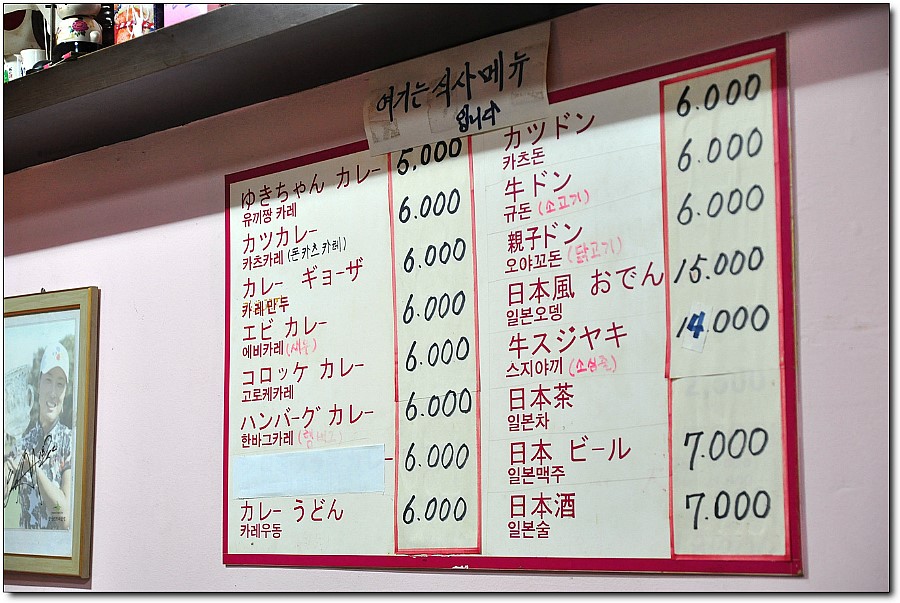 여기는 식사메뉴
입니다
ゆきちゃん カレー 5,000
유끼짱 카레
カツカレー 6.000
카츠카레 (돈카츠카레)
カレー ギョーザ 6.000
카레만두
エビ カレー 6.000
에비카레 (새우)
コロッケ カレー 6.000
고로케카레
ハンバーグ カレー 6.000
한바그카레
6.000
カレー うどん 6.000
카레우동
カツドン 6.000
카츠돈
牛ドン 6.000
규돈 (소고기)
親子ドン 6.000
오야꼬돈 (닭고기)
日本風 おでん 15.000
일본오뎅
牛スジヤキ 14.000
스지야끼 (소심줄)
日本茶
일본차
日本 ビール 7.000
일본맥주
日本酒 7.000
일본술